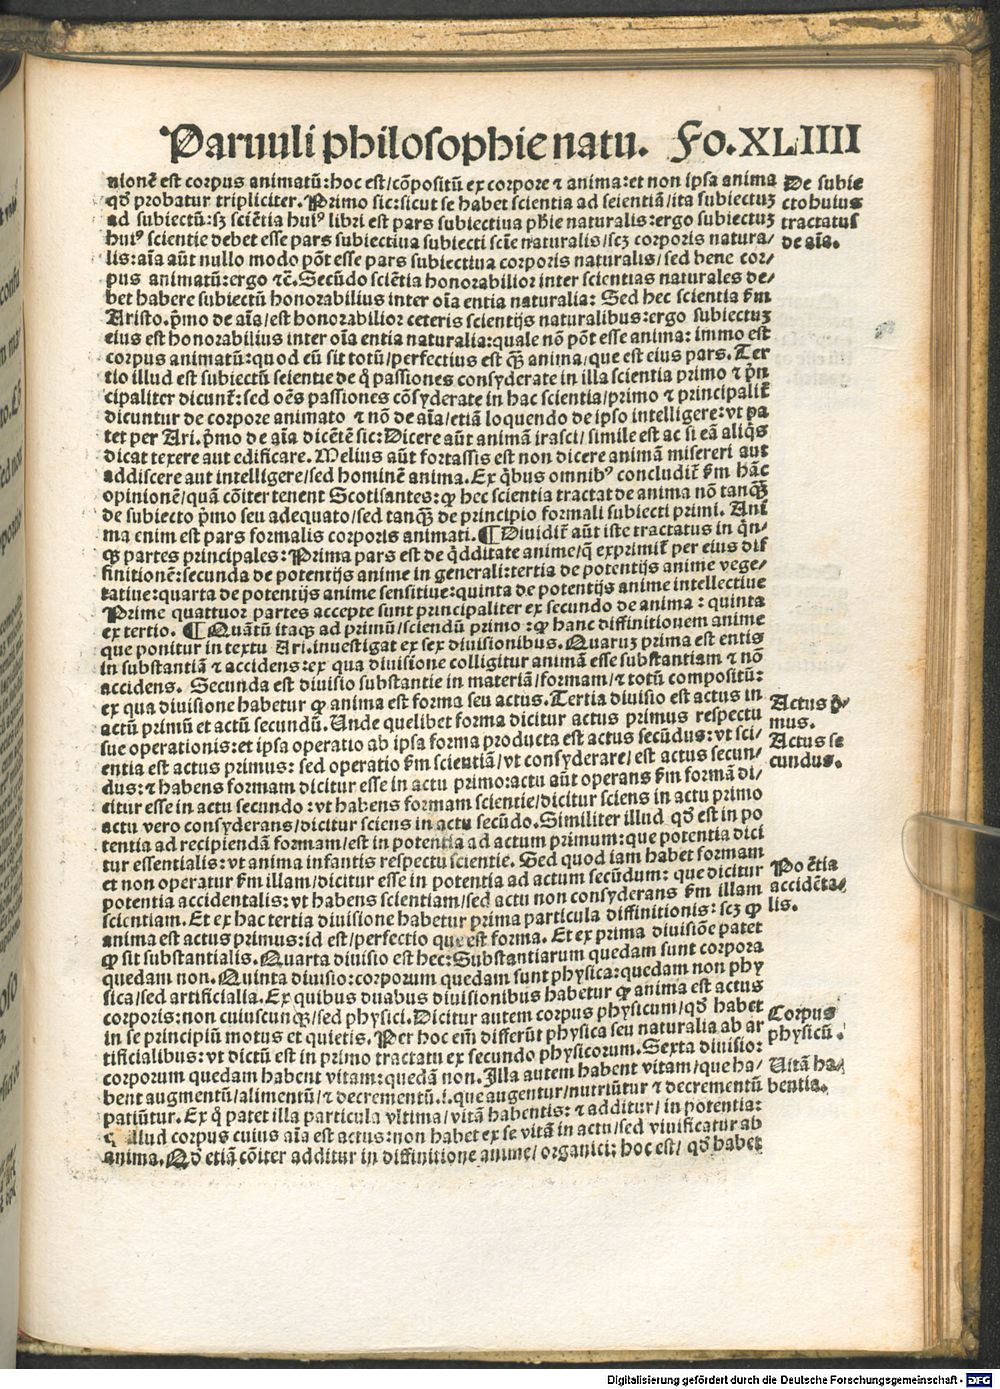 Paruuli philosophie natu. Fo.XLIIII
nionē est corpus animatū:hoc est/cōpositū ex corpore ⁊ anima:et non ipsa anima
qđ probatur tripliciter. Primo sic:sicut se habet scientia ad scientiā/ita subiectuʒ
ad subiectū:sʒ sciētia huiꝰ libri est pars subiectiua phie naturalis:ergo subiectuʒ
huiꝰ scientie debet esse pars subiectiua subiecti sciē naturalis/scʒ corporis natura/
lis:aīa aūt nullo modo pōt esse pars subiectiua corporis naturalis/sed bene cor-
pus animatū:ergo ⁊c̄. Secūdo sciētia honorabilior inter scientias naturales de-
bet habere subiectū honorabilius inter oīa entia naturalia: Sed hec scientia ẜm
Aristo.p̄mo de aīa/est honorabilior ceteris scientijs naturalibus:ergo subiectuʒ
eius est honorabilius inter oīa entia naturalia:quale nō pōt esse anima: immo est
corpus animatū:quod cū sit totū/perfectius est qꝫ̄ anima/que est eius pars. Ter
tio illud est subiectū scientie de q̄ passiones consyderate in illa scientia primo ⁊ p̄n
cipaliter dicunt̄: sed oēs passiones cōsyderate in hac scientia/primo ⁊ principalit̄
dicuntur de corpore animato ⁊ nō de aīa/etiā loquendo de ipso intelligere:vt pa
tet per Ari.p̄mo de aīa dicētē sic:Dicere aūt animā irasci/simile est ac si eā aliq̄s
dicat texere aut edificare. Melius aūt fortassis est non dicere animā misereri aut
addiscere aut intelligere/sed hominē anima. Ex q̄bus omnibꝰ concludit̄ ẜm hāc
opinionē/quā cōiter tenent Scotisantes:ꝙ hec scientia tractat de anima nō tanqꝫ̄
de subiecto p̄mo seu adequato/sed tanqꝫ̄ de principio formali subiecti primi. Ani
ma enim est pars formalis corporis animati. ¶ Diuidit̄ aūt iste tractatus in q̄n-
qꝫ partes principales: Prima pars est de q̄dditate anime/q̄ exprimit̄ per eius dif
finitionē:secunda de potentijs anime in generali:tertia de potentijs anime vege/
tatiue:quarta de potentijs anime sensitiue:quinta de potentijs anime intellectiue
Prime quattuor partes accepte sunt principaliter ex secundo de anima: quinta
ex tertio. ¶ Quātū itaqꝫ ad primū/sciendū primo :ꝙ hanc diffinitionem anime
que ponitur in textu Ari.inuestigat ex sex diuisionibus. Quaruʒ prima est entis
in substantiā ⁊ accidens:ex qua diuisione colligitur animā esse substantiam ⁊ nō
accidens. Secunda est diuisio substantie in materiā/formam/⁊ totū compositū:
ex qua diuisione habetur ꝙ anima est forma seu actus. Tertia diuisio est actus in
actū primū et actū secundū. Unde quelibet forma dicitur actus primus respectu
sue operationis:et ipsa operatio ab ipsa forma producta est actus secūdus: vt sci/
entia est actus primus: sed operatio ẜm scientiā/vt consyderare/est actus secun-
dus:⁊ habens formam dicitur esse in actu primo:actu aūt operans ẜm formā di/
citur esse in actu secundo :vt habens formam scientie/dicitur sciens in actu primo
actu vero consyderans/dicitur sciens in actu secūdo. Similiter illud qđ est in po
tentia ad recipiendā formam/est in potentia ad actum primum:que potentia dici
tur essentialis:vt anima infantis respectu scientie. Sed quod iam habet formam
et non operatur ẜm illam/dicitur esse in potentia ad actum secūdum: que dicitur
potentia accidentalis: vt habens scientiam/sed actu non consyderans ẜm illam
scientiam. Et ex hac tertia diuisione habetur prima particula diffinitionis: scʒ ꝙ
anima est actus primus:id est/perfectio que est forma. Et ex prima diuisiōe patet
ꝙ sit substantialis. Quarta diuisio est hec: Substantiarum quedam sunt corpora
quedam non. Quinta diuisio:corporum quedam sunt physica:quedam non phy
sica/sed artificialia. Ex quibus duabus diuisionibus habetur ꝙ anima est actus
corporis:non cuiuscunqꝫ/sed physici. Dicitur autem corpus physicum/qđ habet
in se principiū motus et quietis. Per hoc em̄ differūt physica seu naturalia ab ar
tificialibus: vt dictū est in primo tractatu ex secundo physicorum. Sexta diuisio:
corporum quedam habent vitam:quedā non. Illa autem habent vitam/que ha/
bent augmentū/alimentū/⁊ decrementū.i.que augentur/nutriūtur ⁊ decrementū
patiūtur. Ex q̄ patet illa particula vltima/vitā habentis: ⁊ additur/in potentia:
illud corpus cuius aīa est actus:non habet ex se vitā in actu/sed viuificatur ab
anima. Qđ etiā cōiter additur in diffinitione anime/organici: hoc est/ qđ habet
De subie
cto huius
tractatus
de aīa.
Actus p̄i/
mus.
Actus se
cundus.
Po ētia
accidēta/
lis.
Corpus
physicū.
Uitā ha/
bentia.
Digitalisierung gefördert durch die Deutsche Forschungsgemeinschaft - DFG